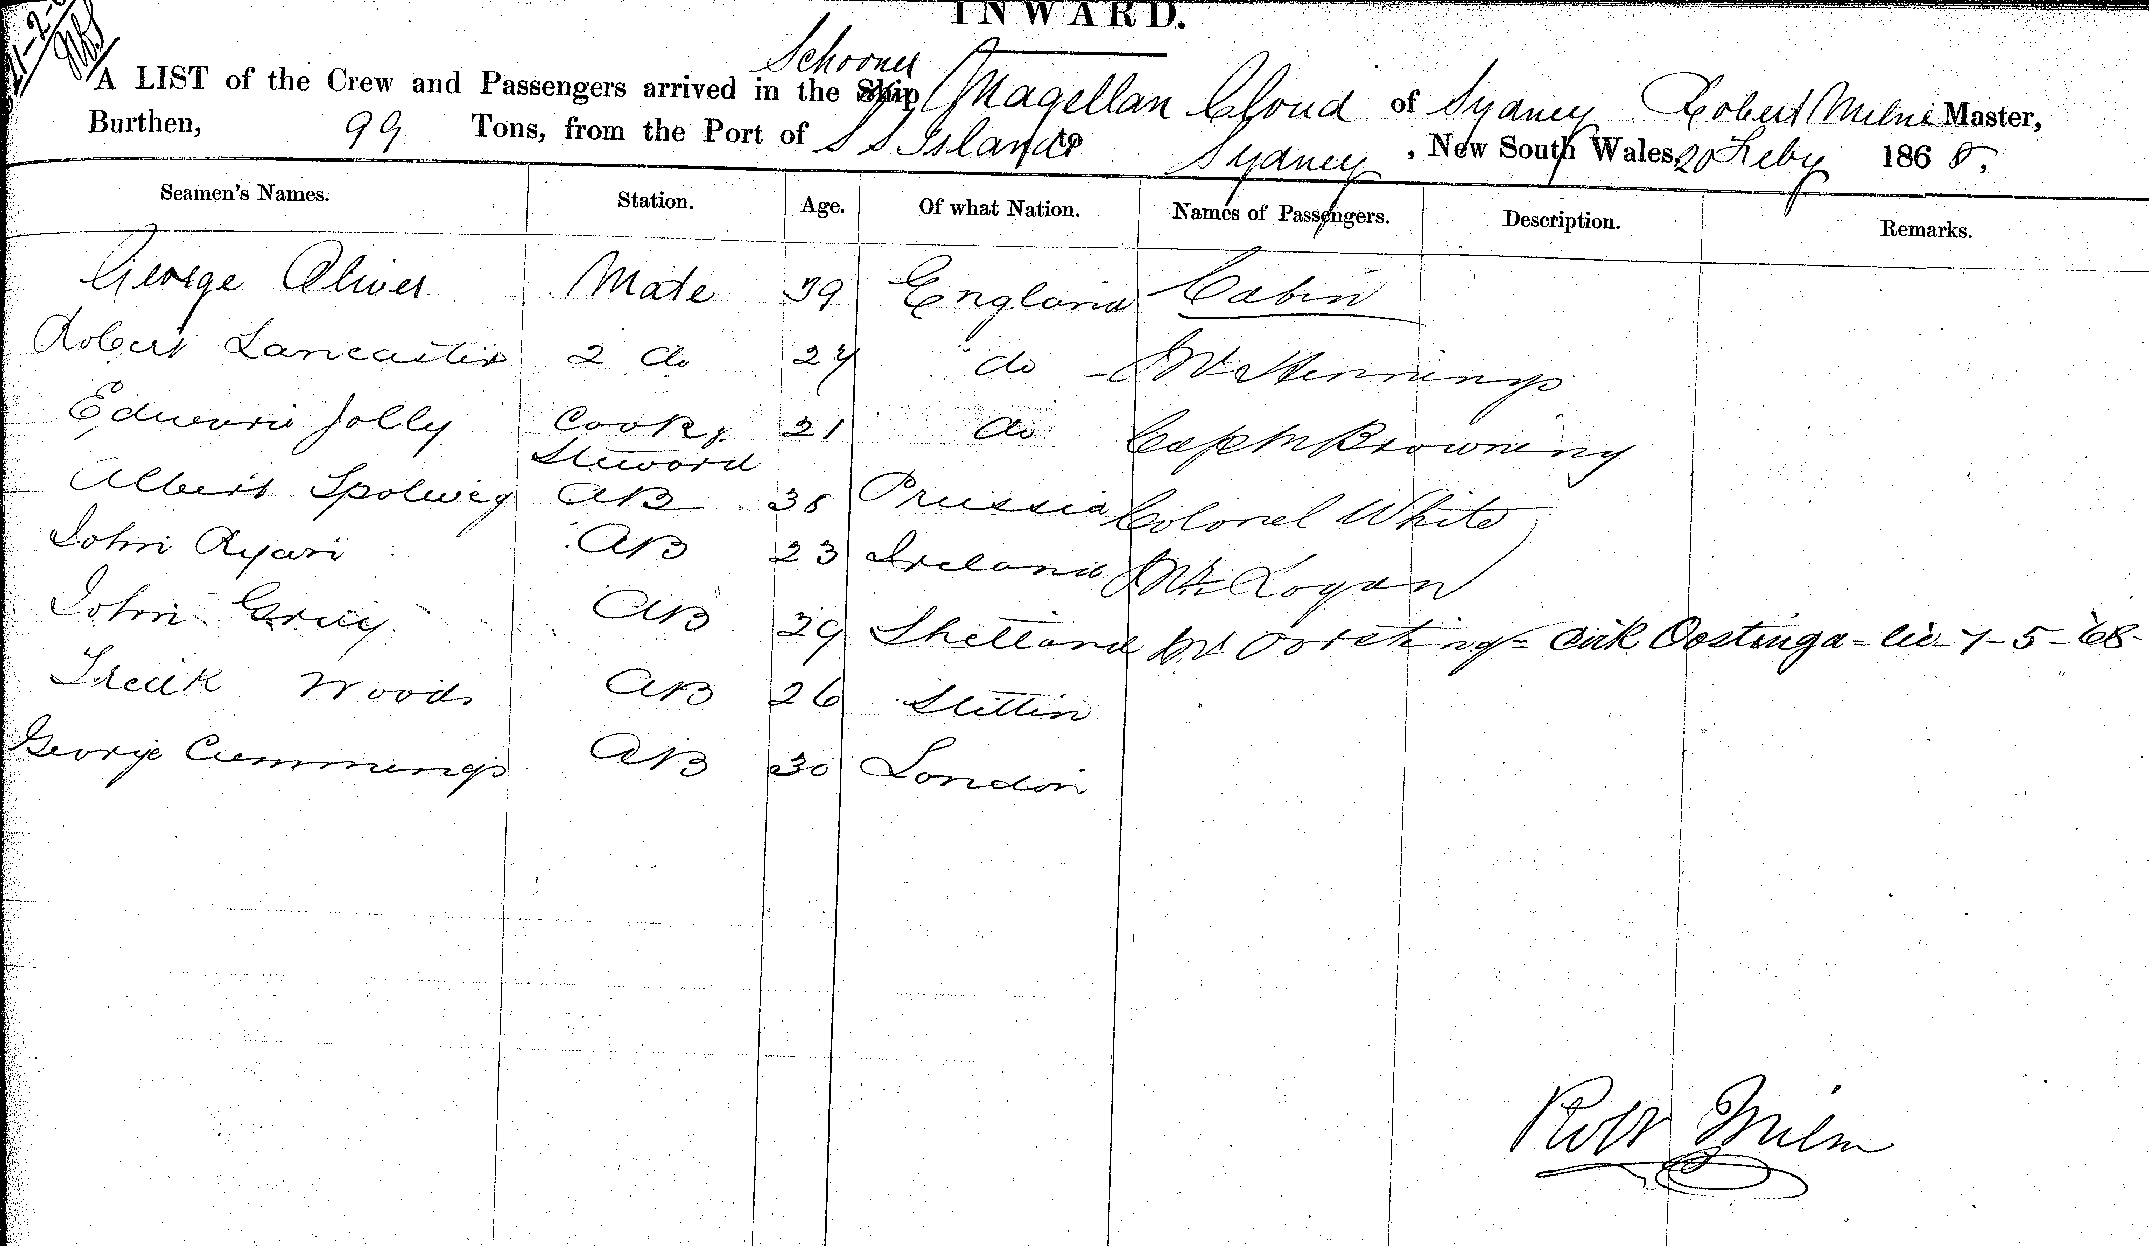 INWARD.
21-2-
A LIST of the Crew and Passengers arrived in the Ship Schooner Magellan Cloud of Sydney Robert Milne Master,
Burthen, 99 Tons, from the Port of S S Islands to Sydney, New South Wales, 20 Feby 1868.
Seamen's Names. Station. Age. Of what Nation. Names of Passengers. Description. Remarks.
George Oliver Mate 39 England Cabin
Robert Lancaster 2 do 27 do Mr Hennings
Edward Jolly Cook & 21 do Captn Browning
Steward
Albert Spolwig AB 38 Prussia Colonel White
John Ryan AB 23 Ireland Mr Logan
John Gray AB 29 Shetland Mr Oosting - Oostinga - 7-5-68
Fredk Woods AB 26 Stettin
George Cummings AB 30 London
Robt Milne